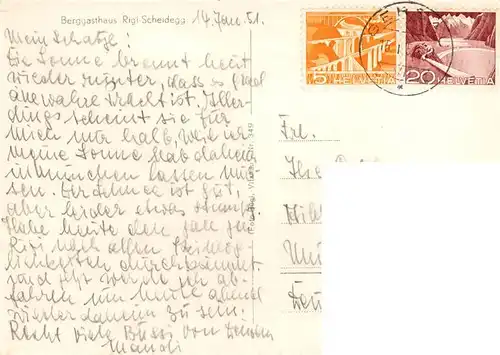 Berggasthaus Rigi-Scheidegg 14. Jan. 51.
Mein Schatzi!
Die Sonne brennt heut
wieder runter, dass es
eine wahre Pracht ist. Aller-
dings scheint sie für
mich nur halb, weil ich
meine Sonne hab daheim
in München lassen müs-
sen. Der Schnee ist gut,
aber leider etwas stumpf.
Habe heute den ganzen
Rigi nach allen
durchkämmt
und jetzt werde ich ab-
fahren um heute abend
wieder daheim zu sein.
Recht viele Bussi von Deinem
Manoli
5 HELVETIA
20 HELVETIA
Frl.
Ilse